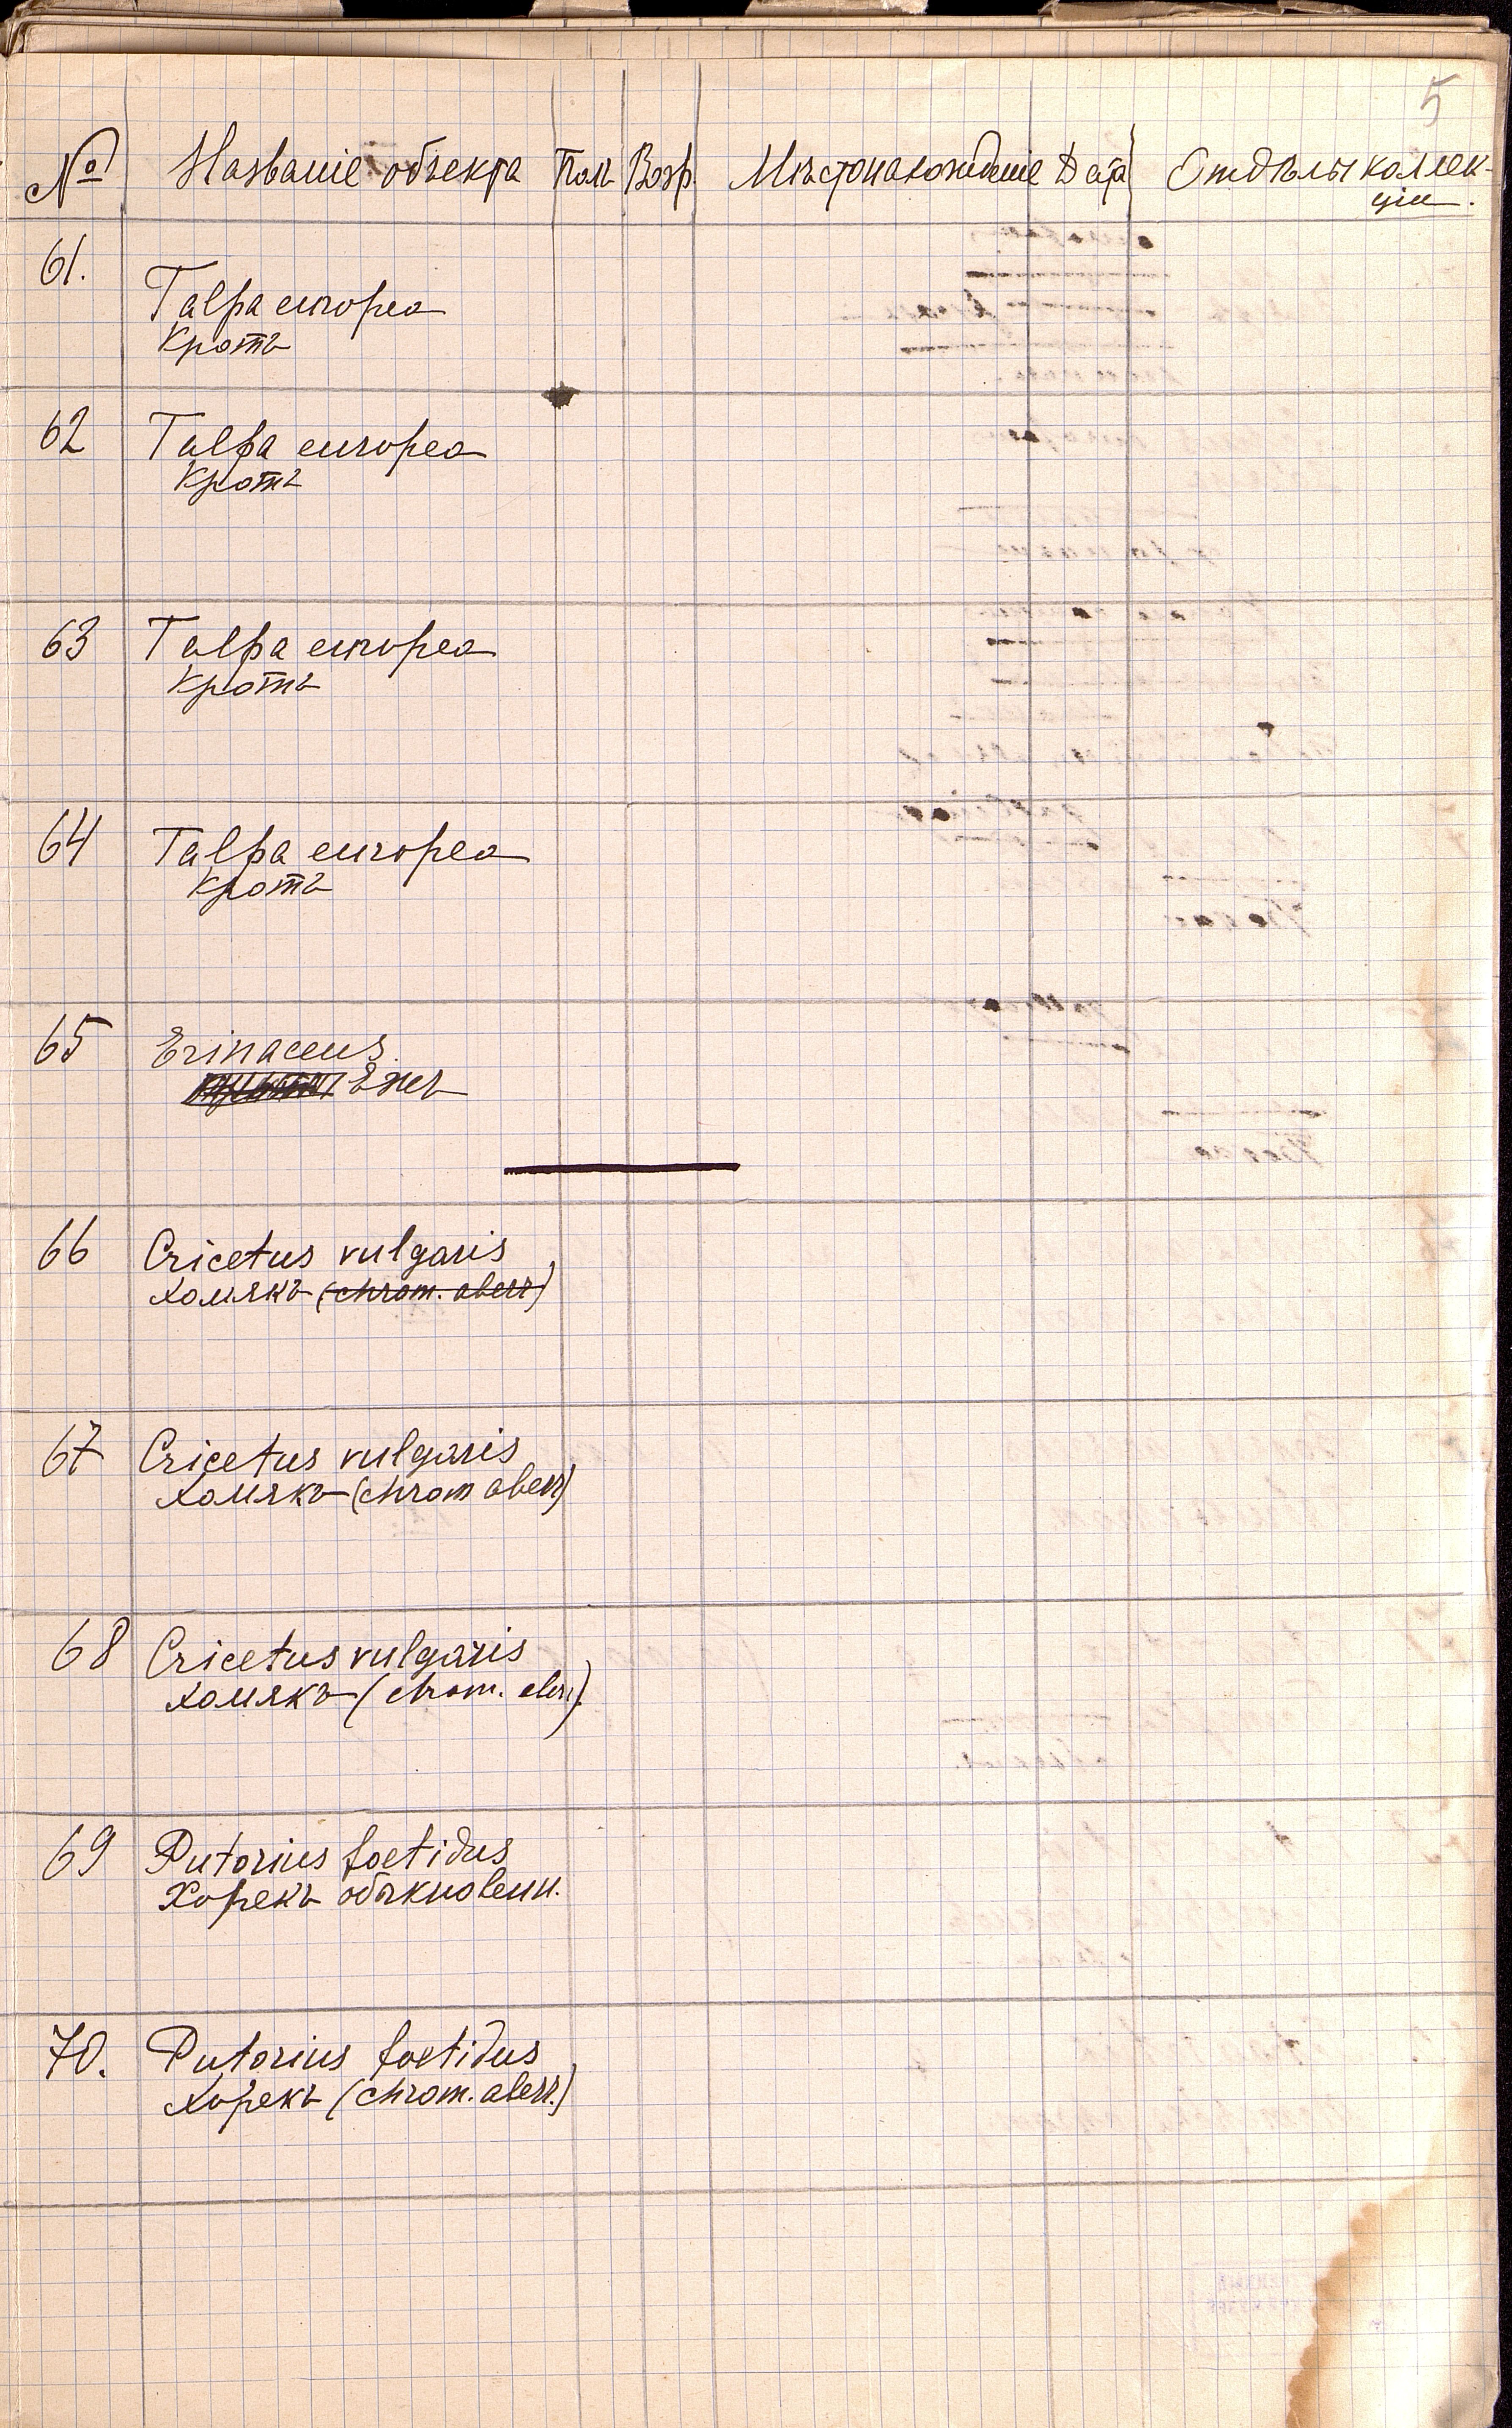 5
№ Названіе объекта Полъ Возр. Мѣстонахожденіе Дата Отдѣлы коллек-
ціи.
61.
Talpa europea
Кротъ
62 Talpa europea
Кротъ
63 Talpa europea
Кротъ
64 Talpa europea
Кротъ
65 Erinaceus.
Ежъ
66 Cricetus vulgaris
Хомякъ (chrom. aberr)
67 Cricetus vulgaris
Хомякъ (chrom aberr)
68 Cricetus vulgaris
Хомякъ (chrom. aberr.)
69 Putorius foetidus
Хорекъ обыкновенн.
70. Putorius foetidus
Хорекъ (chrom. aberr.)